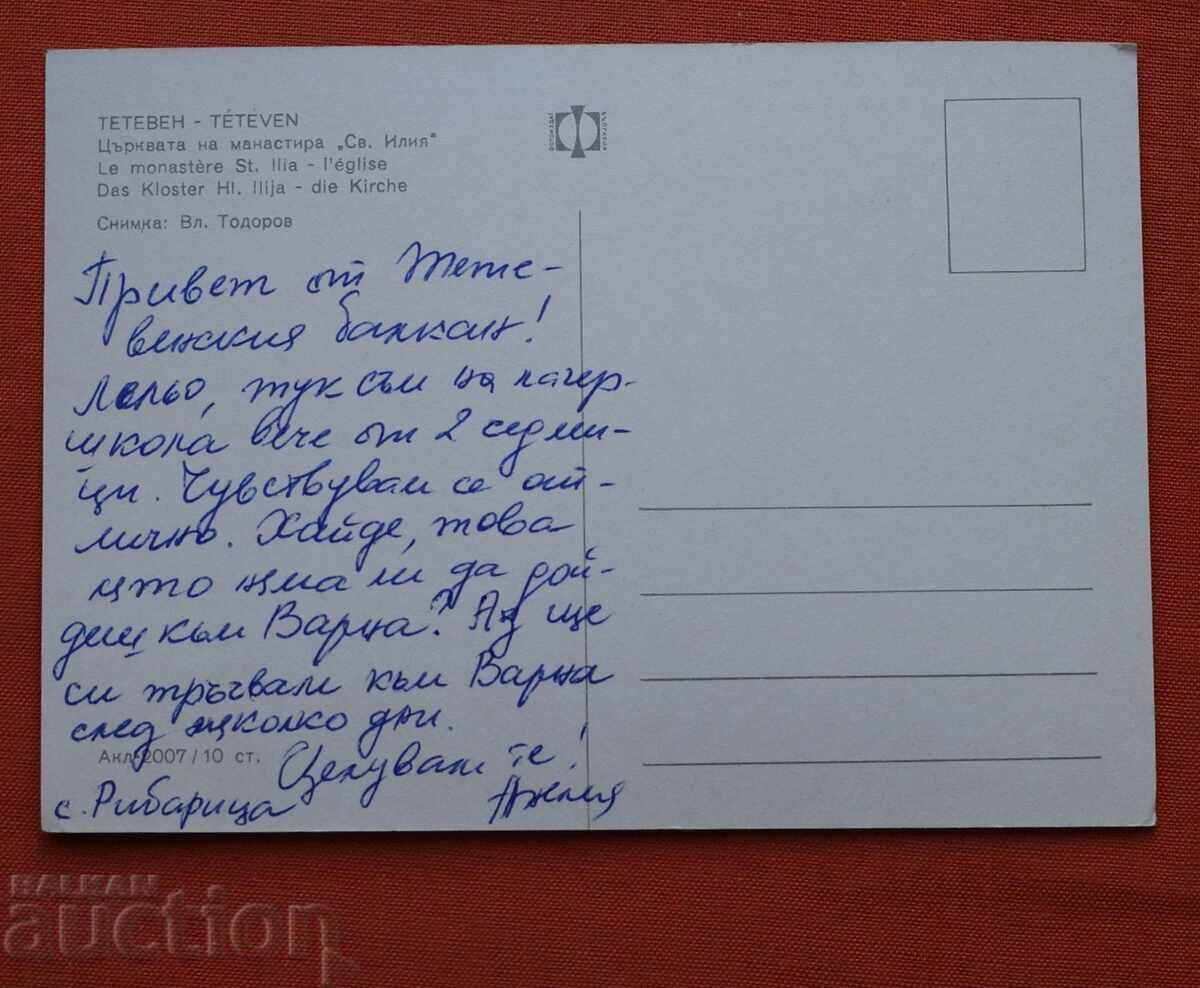 ТЕТЕВЕН - TÉTÉVEN
Църквата на манастира „Св. Илия"
Le monastère St. Ilia - l'église
Das Kloster Hl. Ilija - die Kirche
Снимка: Вл. Тодоров
Привет от Тете-
венския балкан!
Лельо, тук съм на лагер-
школа вече от 2 седми-
ци. Чувствувам се от-
лично. Хайде, това
што няма ли да дой-
деш към Варна? Аз ще
си тръгвам към Варна
след няколко дни.
Целувам те!
с. Рибарица
Акл 2007/10 ст.
BALKAN
auction